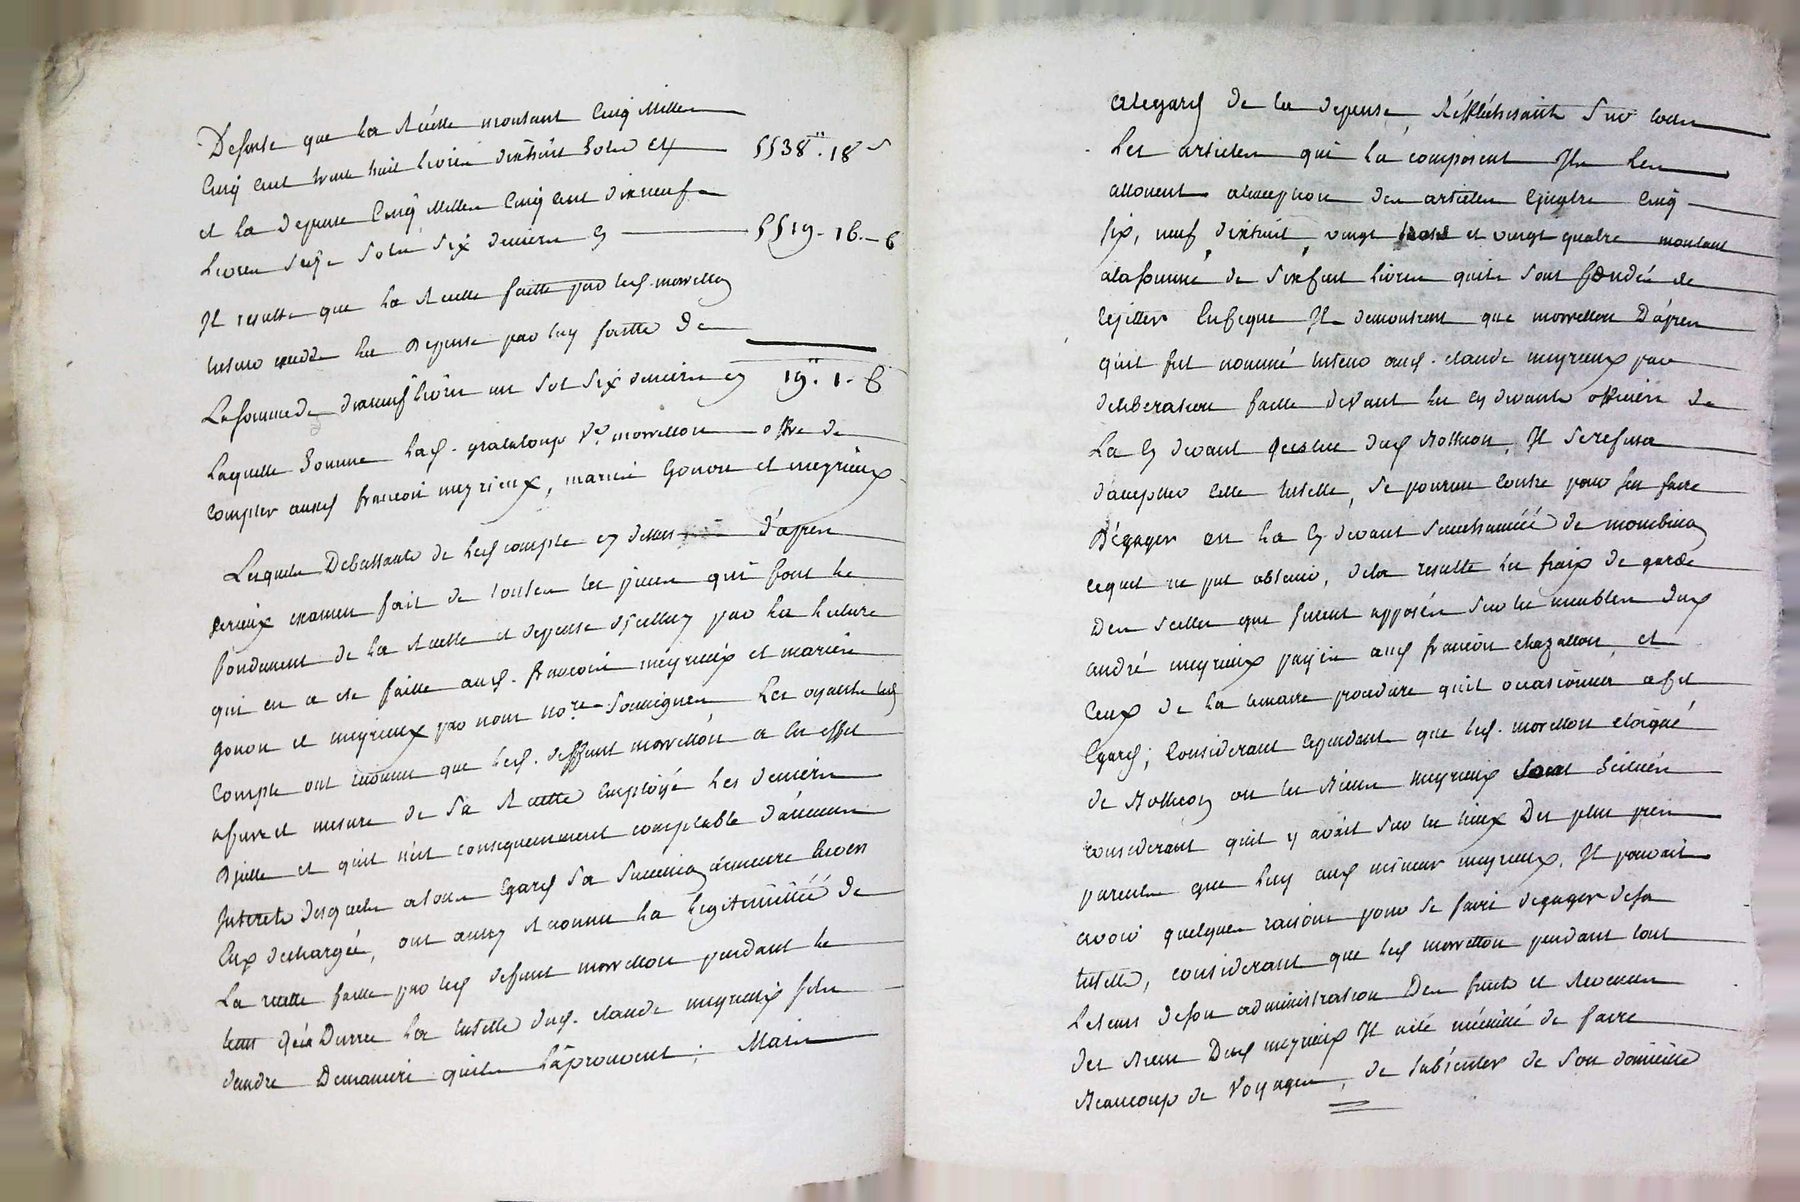 De sorte que la Recette montant Cinq Milles
Cinq cent trente huit livres dixhuit sols Cy 5538 ll. 18 s
et la depense Cinq Milles Cinq cent dixneuf
Livres seize sols six deniers Cy 5519 - 16 - 6
Il resulte que la Recette faitte par led. morrellon
tuteur excede la depense par luy faitte de
La somme de dixneuf livres un sol six deniers cy 19 ll. 1 - 6
Laquelle Somme lad. grataloup Ve. morrellon offre de
compter auxd françois meyrieux, mariés Gonon et meyrieux
Lesquels Debattants de led compte cy dessus d'après
serieux examen fait de touttes les pieces qui font le
fondement de la Recette et depense d'icelluy par la lecture
qui en a eté faitte aud. françois meyrieux et mariés
gonon et meyrieux par nous nore. Soussigné Les oyants led
Compte ont reconnu que led. deffunt morrellon a en effet
afur et mesure de sa Recette Employé les deniers
Dicelle et qu'il n'est consequemment comptable d'aucuns
Interets desquels a tous Egards sa succession demeure envers
Eux dechargée, ont aussy Reconnu la legitimitée de
La recette faitte par led defunt morrellon pendant le
tems qu'a Durée la tutelle dud. claude meyrieux fils
d'andré De maniere qu'ils l'approuvent; Mais
alegard de la depense, Réfléchissants Sur tous
Les articles qui la composent Ils les
allouent alexeption des articles quatre Cinq
six, neuf, dixhuit, vingt trois et vingt quatre montant
alasomme de livres quils sont fondés de
rejetter En ce que Ils demontrent que morrellon D'apres
qu'il fut nommé tuteur aud. claude meyrieux par
deliberation faitte devant les cy devants officiers de
La cy devant dud Rossillon, Il se refusa
d'accepter cette tutelle, se pourvu contre pour s'en faire
Dégager en la cy devant Senechaussée de montbrison
ce quil ne put obtenir, dela resulte les fraix de garde
Des scellés que furent apposés sur les meubles dud
andré meyrieux payés aud françois chazallon, et
Ceux de la procedure qu'il occasionna a cet
Egard; Considerant Cependant que led. morellon eloigné
de ou les Mineurs meyrieux sont scitués
considerant quil y avait sur les lieux Des plus près
parents que luy aud mineur meyrieux, Il pouvait
avoir quelques raisons pour se faire degager de sa
tutelle, considerant que led morrellon pendant tout
Le tems de son administration Des fruits et Revenus
des Biens Dud meyrieux Il a été nécéssité de faire
Beaucoup de Voyages, de s'absenter de son domicille